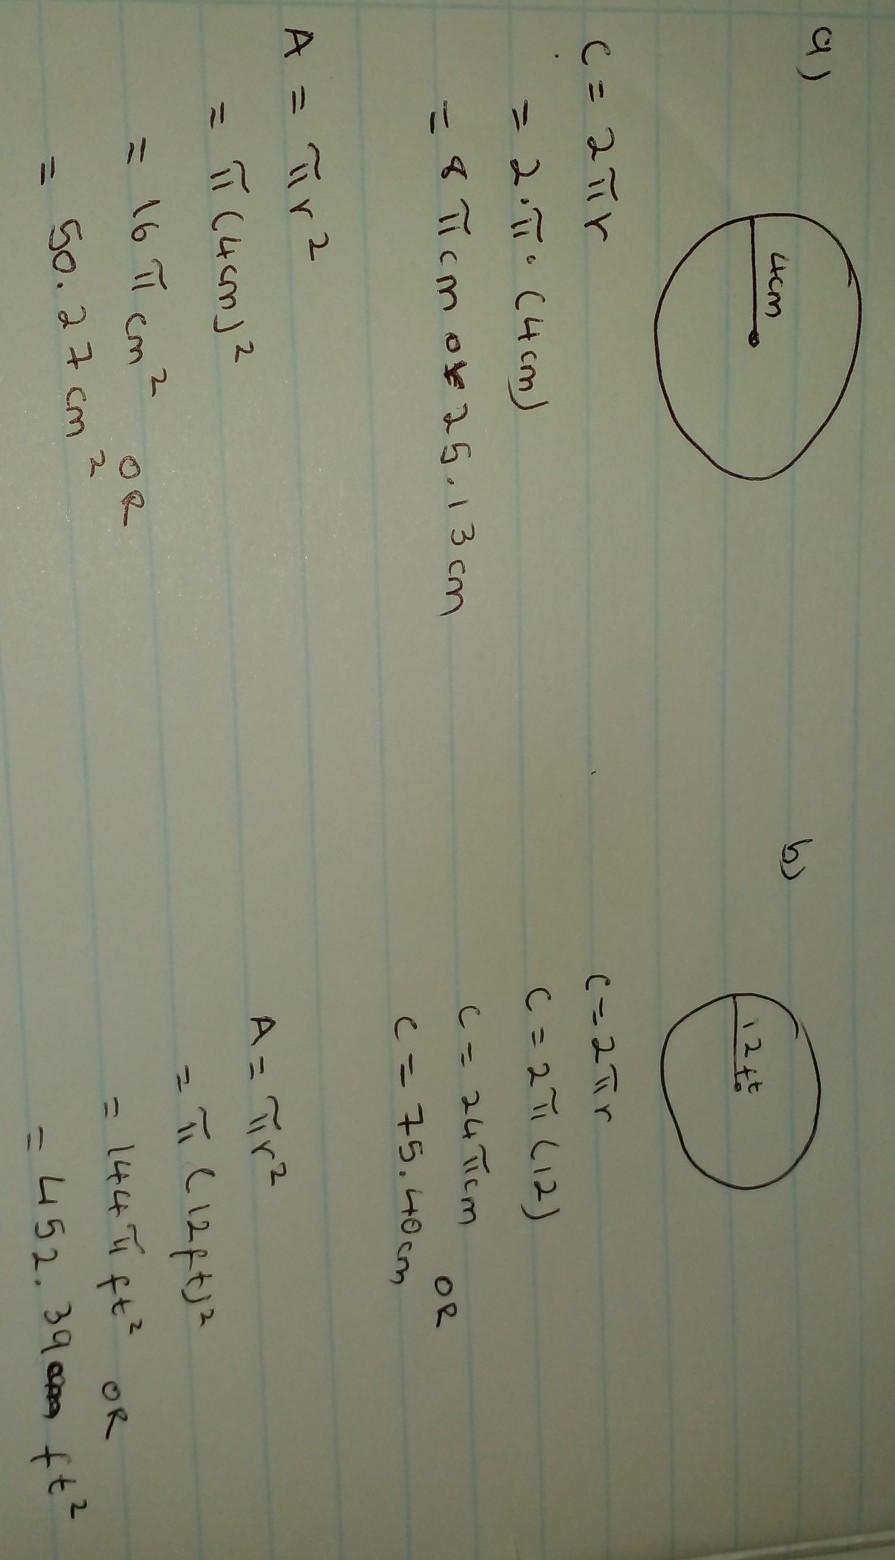 a)
4cm
C = 2πr
= 2·π·(4cm)
= 8πcm or 25.13cm
A = πr²
= π(4cm)²
= 16πcm² OR
= 50.27cm²
b)
12ft
C = 2πr
C = 2π(12)
C = 24πcm OR
C = 75.40cm
A = πr²
= π(12ft)²
= 144πft² OR
= 452.39 ft²